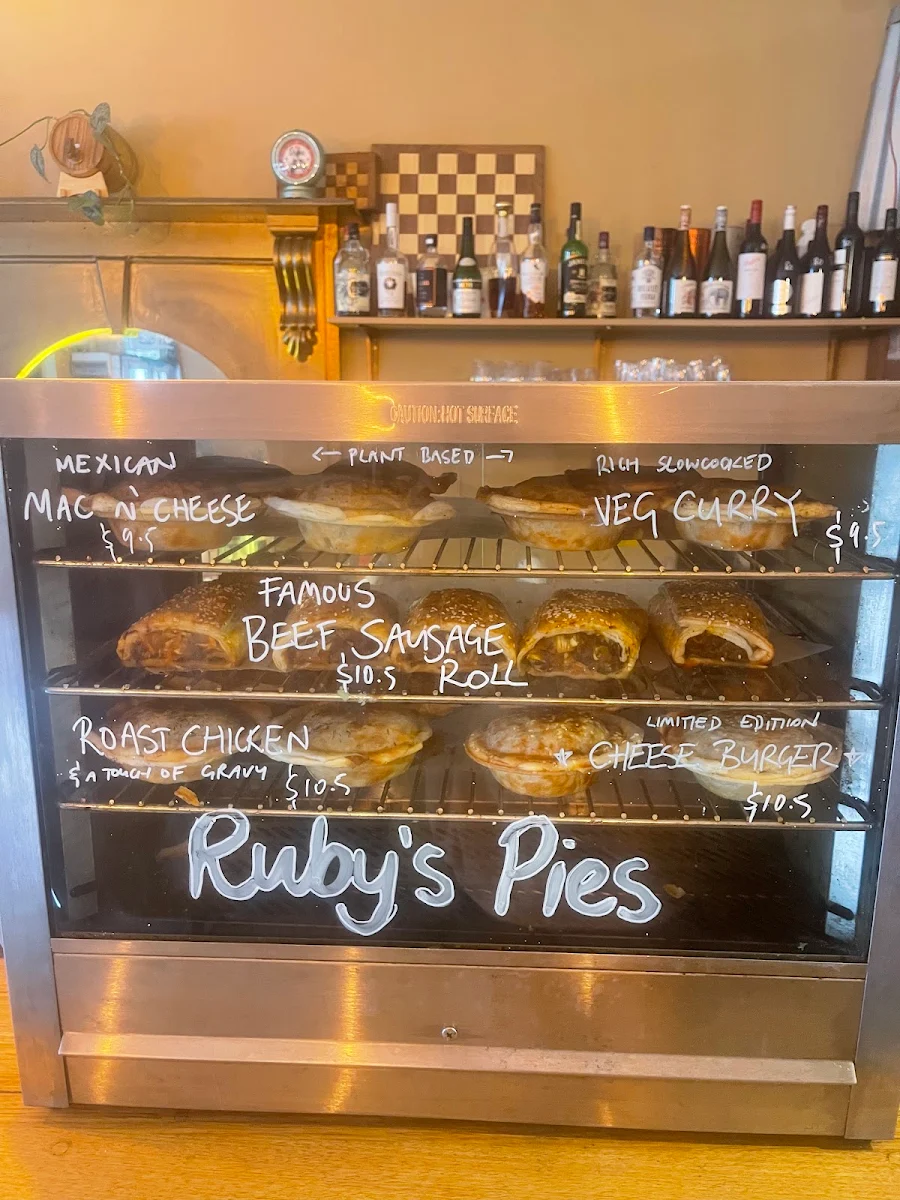 CAUTION:HOT SURFACE
MEXICAN
MAC N' CHEESE
$9.5
← PLANT BASED →
RICH SLOWCOOKED
VEG CURRY
$9.5
FAMOUS
BEEF SAUSAGE
$10.5 ROLL
ROAST CHICKEN
& A TOUCH OF GRAVY
$10.5
LIMITED EDITION
★ CHEESE BURGER ★
$10.5
Ruby's Pies